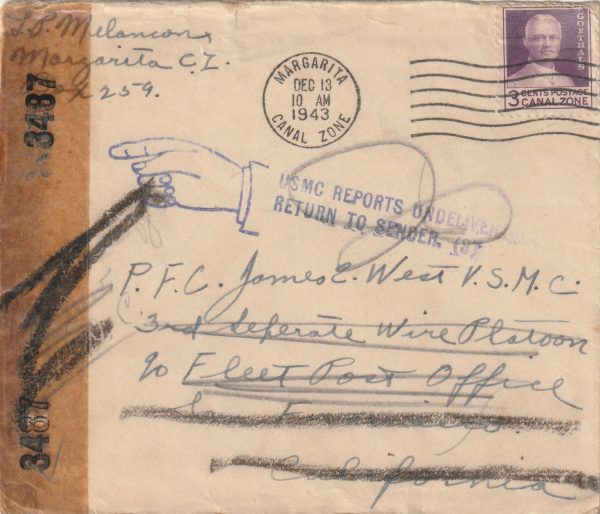 L.P. Melancon
Margarita C.Z.
Box 259.
3487
MARGARITA
DEC 13
10 AM
1943
CANAL ZONE
GOETHALS
3 CENTS POSTAGE
CANAL ZONE
USMC REPORTS UNDELIVER
RETURN TO SENDER.
P.F.C. James E. West U.S.M.C.
3rd Seperate Wire Platoon
% Fleet Post Office
San Francisco.
California
3487